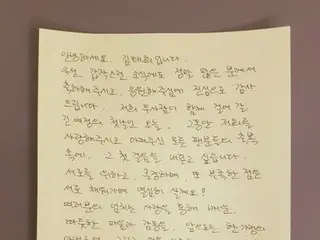 안녕하세요. 김태희입니다.
우선, 갑작스런 소식에도 정말 많은 분께서
축하해주시고, 응원해주심에 진심으로 감사
드립니다. 저희 두사람이 함께 걸어 갈
긴 여정의 첫날인 오늘, 그동안 저희를
사랑해주시고 아껴주신 모든 팬분들의 축복
속에, 그 첫 걸음을 내딛고 싶습니다.
서로를 위하고, 존경하며, 또 부족한 점은
서로 채워가며 열심히 살게요^^
여러분의 넘치는 사랑을 통해 배운,
따뜻한 마음과 감동을, 앞으로는 한 가정의